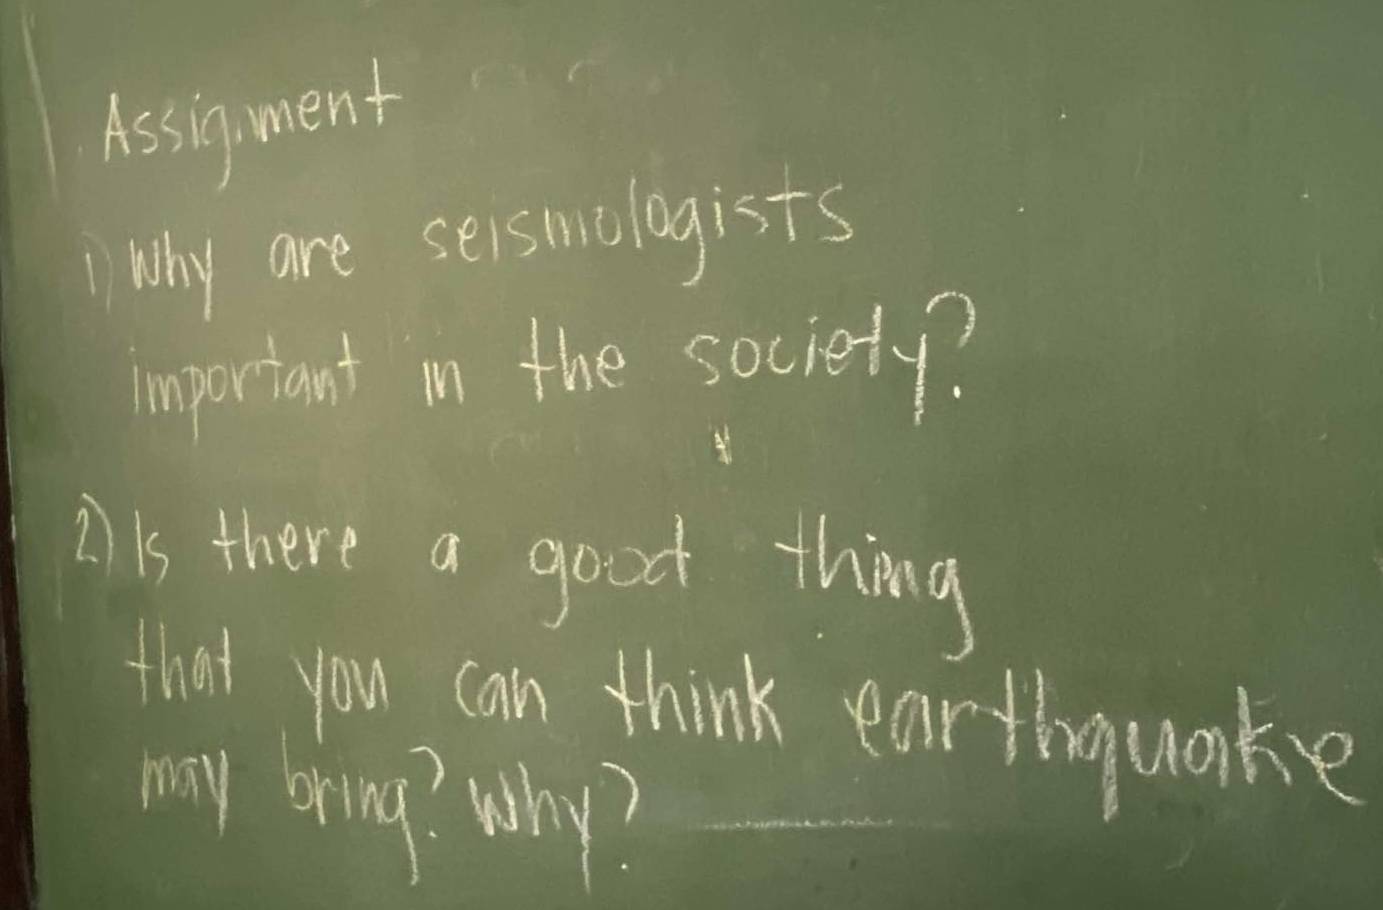 Assignment
1) Why are seismologists
important in the society?
2) Is there a good thing
that you can think earthquake
may bring? Why?